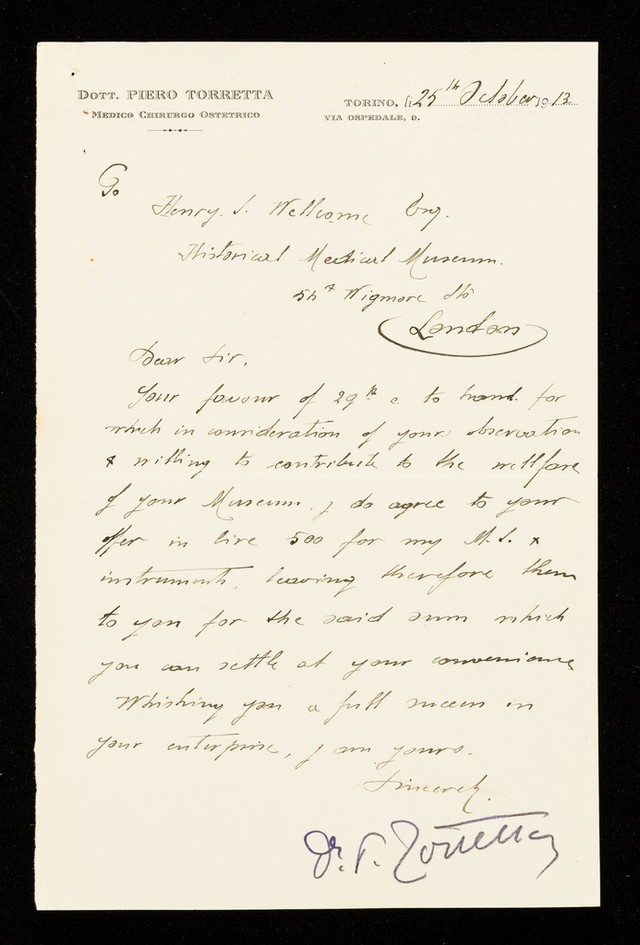 DOTT. PIERO TORRETTA
MEDICO CHIRURGO OSTETRICO
TORINO, li 25th October 1913
VIA OSPEDALE, 9.
To
Henry. S. Wellcome Esq.
Historical Medical Museum.
54A Wigmore Str
London
Dear Sir,
Your favour of 29th c. to hand. for
which in consideration of your observation
& willing to contribute to the wellfare
of your Museum. I do agree to your
offer in lire 500 for my M.S. &
instruments, leaving therefore them
to you for the said sum which
you can settle at your convenience
Whishing you a full succes in
your enterprise, I am yours.
Sincerely.
Dr. P. Torretta